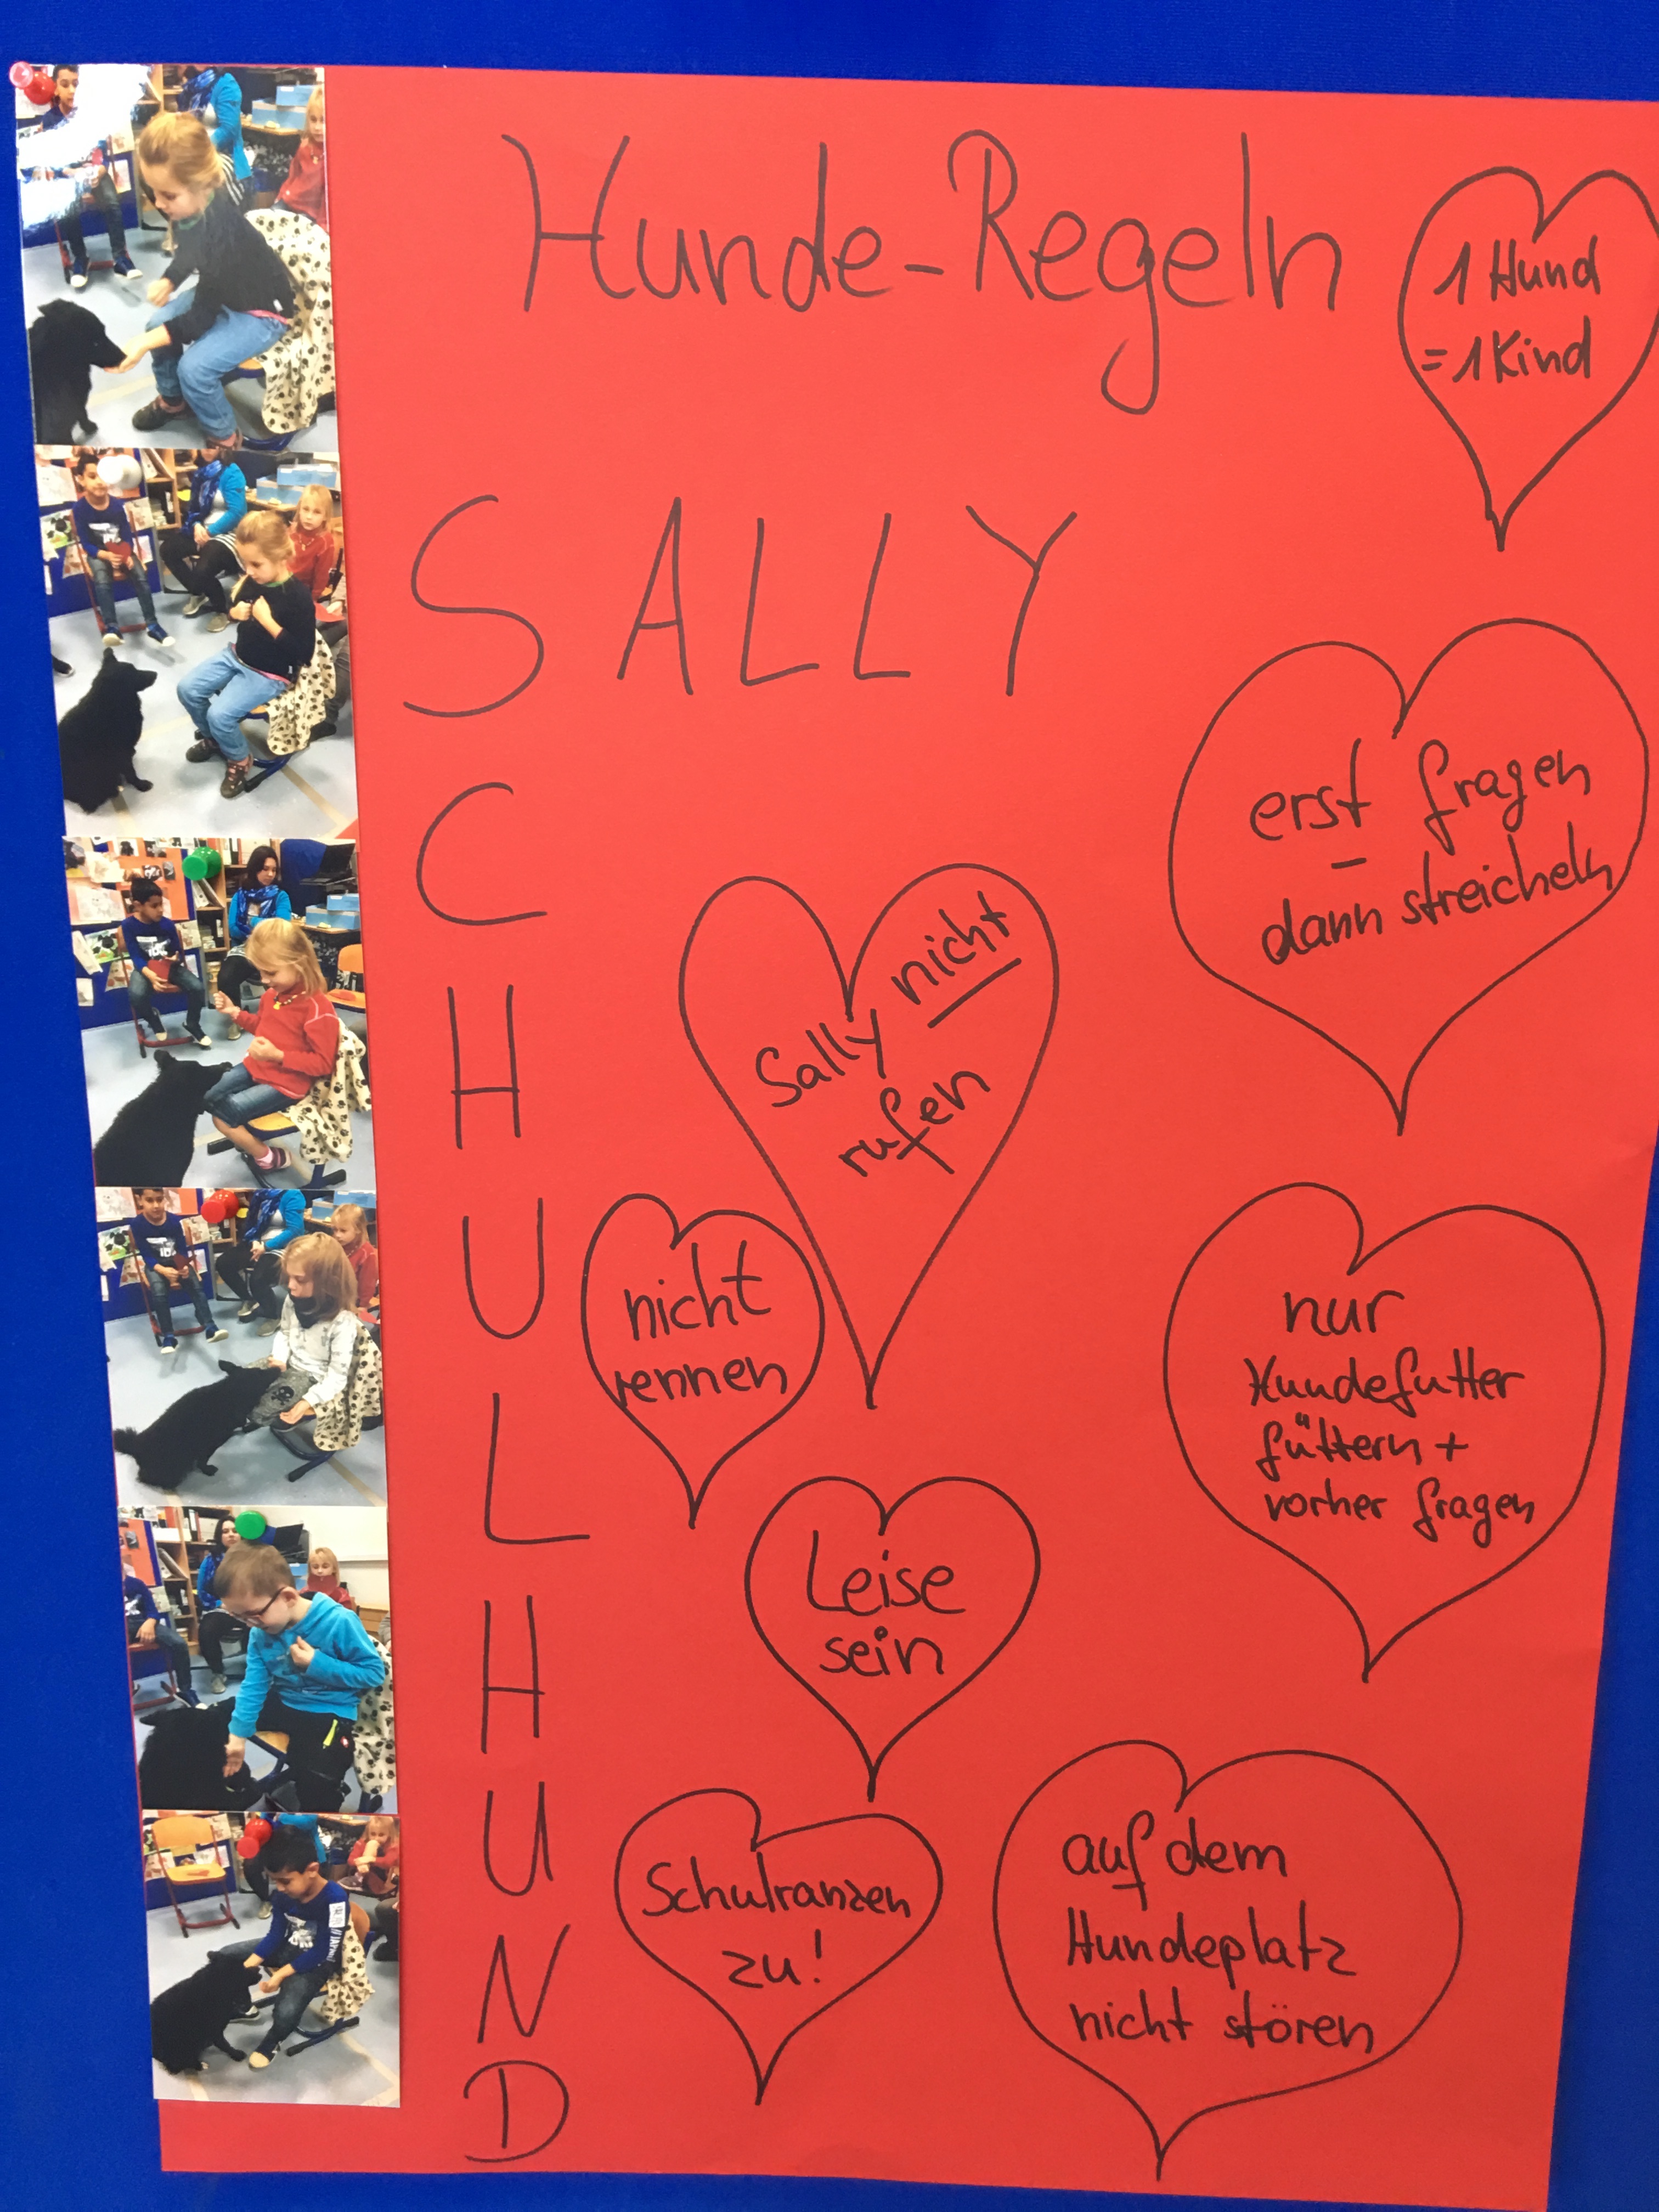 Hunde-Regeln
1 Hund
= 1 Kind
SALLY
C
H
U
L
H
U
N
D
erst fragen
–
dann streicheln
Sally nicht
rufen
nicht
rennen
nur
Hundefutter
füttern +
vorher fragen
Leise
sein
Schulranzen
zu!
auf dem
Hundeplatz
nicht stören